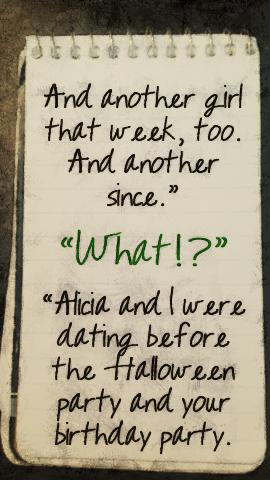 And another girl
that week, too.
And another
since.”
“What!?”
“Alicia and I were
dating before
the Halloween
party and your
birthday party.